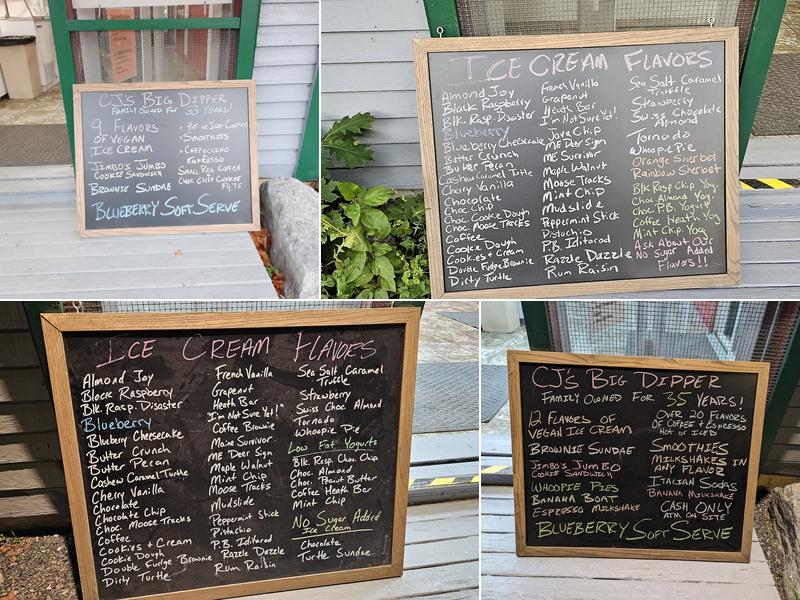 CJ's BIG DIPPER
FAMILY OWNED FOR 33 YEARS!
9 FLAVORS
OF VEGAN
ICE CREAM
JIMBO'S JUMBO
COOKIE SANDWICH
BROWNIE SUNDAE
• HOT OR ICED COFFEE
• SMOOTHIES
• CAPPUCCINO
ESPRESSO
SMALL REG COFFEE
CHOC CHIP COOKIE
$4.75
BLUEBERRY SOFT SERVE
ICE CREAM FLAVORS
Almond Joy
Black Raspberry
Blk. Rasp. Disaster
Blueberry
Blueberry Cheesecake
Butter Crunch
Butter Pecan
Cashew Caramel Turtle
Cherry Vanilla
Chocolate
Choc. Chip
Choc. Cookie Dough
Choc. Moose Tracks
Coffee
Cookie Dough
Cookies + Cream
Double Fudge Brownie
Dirty Turtle
French Vanilla
Grapenut
Heath Bar
I'm Not Sure Yet!
Java Chip
ME Deer Sign
ME Survivor
Maple Walnut
Moose Tracks
Mint Chip
Mudslide
Peppermint Stick
Pistachio
P.B. Iditarod
Razzle Dazzle
Rum Raisin
Sea Salt Caramel
Truffle
Strawberry
Swiss Chocolate
Almond
Tornado
Whoopie Pie
Orange Sherbet
Rainbow Sherbet
Blk Rasp Chip Yog.
Choc. Almond Yog.
Choc. P.B. Yogurt
Coffee Heath Yog
Mint Chip Yog.
Ask About Our
No Sugar Added
Flavors!!
ICE CREAM FLAVORS
Almond Joy
Black Raspberry
Blk Rasp. Disaster
Blueberry
Blueberry Cheesecake
Butter Crunch
Butter Pecan
Cashew Caramel Turtle
Cherry Vanilla
Chocolate
Chocolate Chip
Choc. Moose Tracks
Coffee
Cookies + Cream
Cookie Dough
Double Fudge Brownie
Dirty Turtle
French Vanilla
Grapenut
Heath Bar
"I'm Not Sure Yet!"
Coffee Brownie
Maine Survivor
ME Deer Sign
Maple Walnut
Mint Chip
Moose Tracks
Mudslide
Peppermint Stick
Pistachio
P.B. Iditarod
Razzle Dazzle
Rum Raisin
Sea Salt Caramel
Truffle
Strawberry
Swiss Choc Almond
Tornado
Whoopie Pie
Low Fat Yogurts
Blk. Rasp. Choc. Chip
Choc. Almond
Choc. Peanut Butter
Coffee Heath Bar
Mint Chip
No Sugar Added
Ice Cream
Chocolate
Turtle Sundae
CJ's BIG DIPPER
FAMILY OWNED FOR 35 YEARS!
12 FLAVORS OF
VEGAN ICE CREAM
BROWNIE SUNDAE
JIMBO'S JUMBO
COOKIE SANDWICH
WHOOPIE PIES
BANANA BOAT
ESPRESSO MILKSHAKE
OVER 20 FLAVORS
OF COFFEE + ESPRESSO
HOT OR ICED
SMOOTHIES
MILKSHAKES IN
ANY FLAVOR
ITALIAN SODAS
BANANA MILKSHAKE
CASH ONLY
ATM ON SITE
BLUEBERRY SOFT SERVE